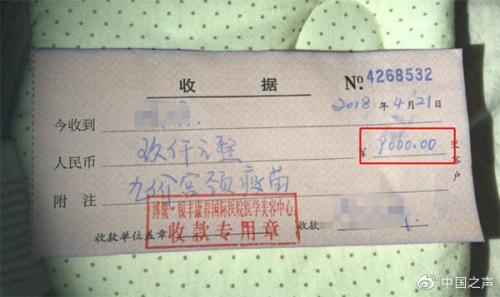 收 据 № 4268532
2018 年 4 月 21 日
今收到
人民币 玖仟元整 ¥ 9000.00
附 注 九价宫颈疫苗
博鳌银丰康养国际医院医学美容中心
收款专用章
收款单位盖章 收款
@中国之声